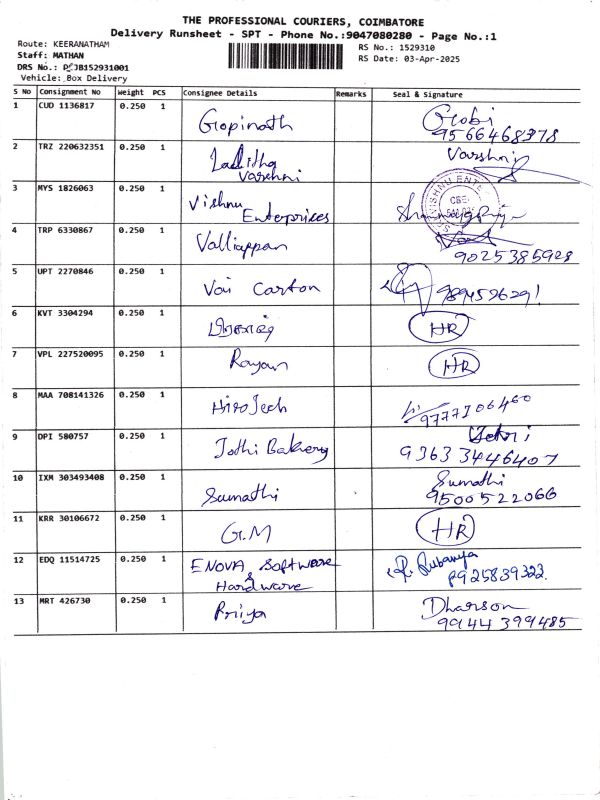 THE PROFESSIONAL COURIERS, COIMBATORE
Delivery Runsheet - SPT - Phone No.:9047080280 - Page No.:1
Route: KEERANATHAM
RS No.: 1529310
Staff: MATHAN
RS Date: 03-Apr-2025
DRS No.: PJB152931001
Vehicle: Box Delivery
S No Consignment No Weight PCS Consignee Details Remarks Seal & Signature
1 CUD 1136817 0.250 1 Gopinath Gobi
9566468378
2 TRZ 220632351 0.250 1 Lalitha Varshni
Varshni
3 MYS 1826063 0.250 1 Vishnu
Enterprises
VISHNU ENTE
CBE
4 TRP 6330867 0.250 1 Valliappan
9025385928
5 UPT 2270846 0.250 1 Vai Carton
6 KVT 3304294 0.250 1 HR
7 VPL 227520095 0.250 1 Rayan HR
8 MAA 708141326 0.250 1 HiroTech 9777106460
9 DPI 580757 0.250 1 Jothi Bakery
93633446407
10 IXM 303493408 0.250 1 Sumathi Sumathi
9500522066
11 KRR 30106672 0.250 1 G.M HR
12 EDQ 11514725 0.250 1 ENOVA Software
& Hardware
8925839322
13 MRT 426730 0.250 1 Priya Dharson
9944399485